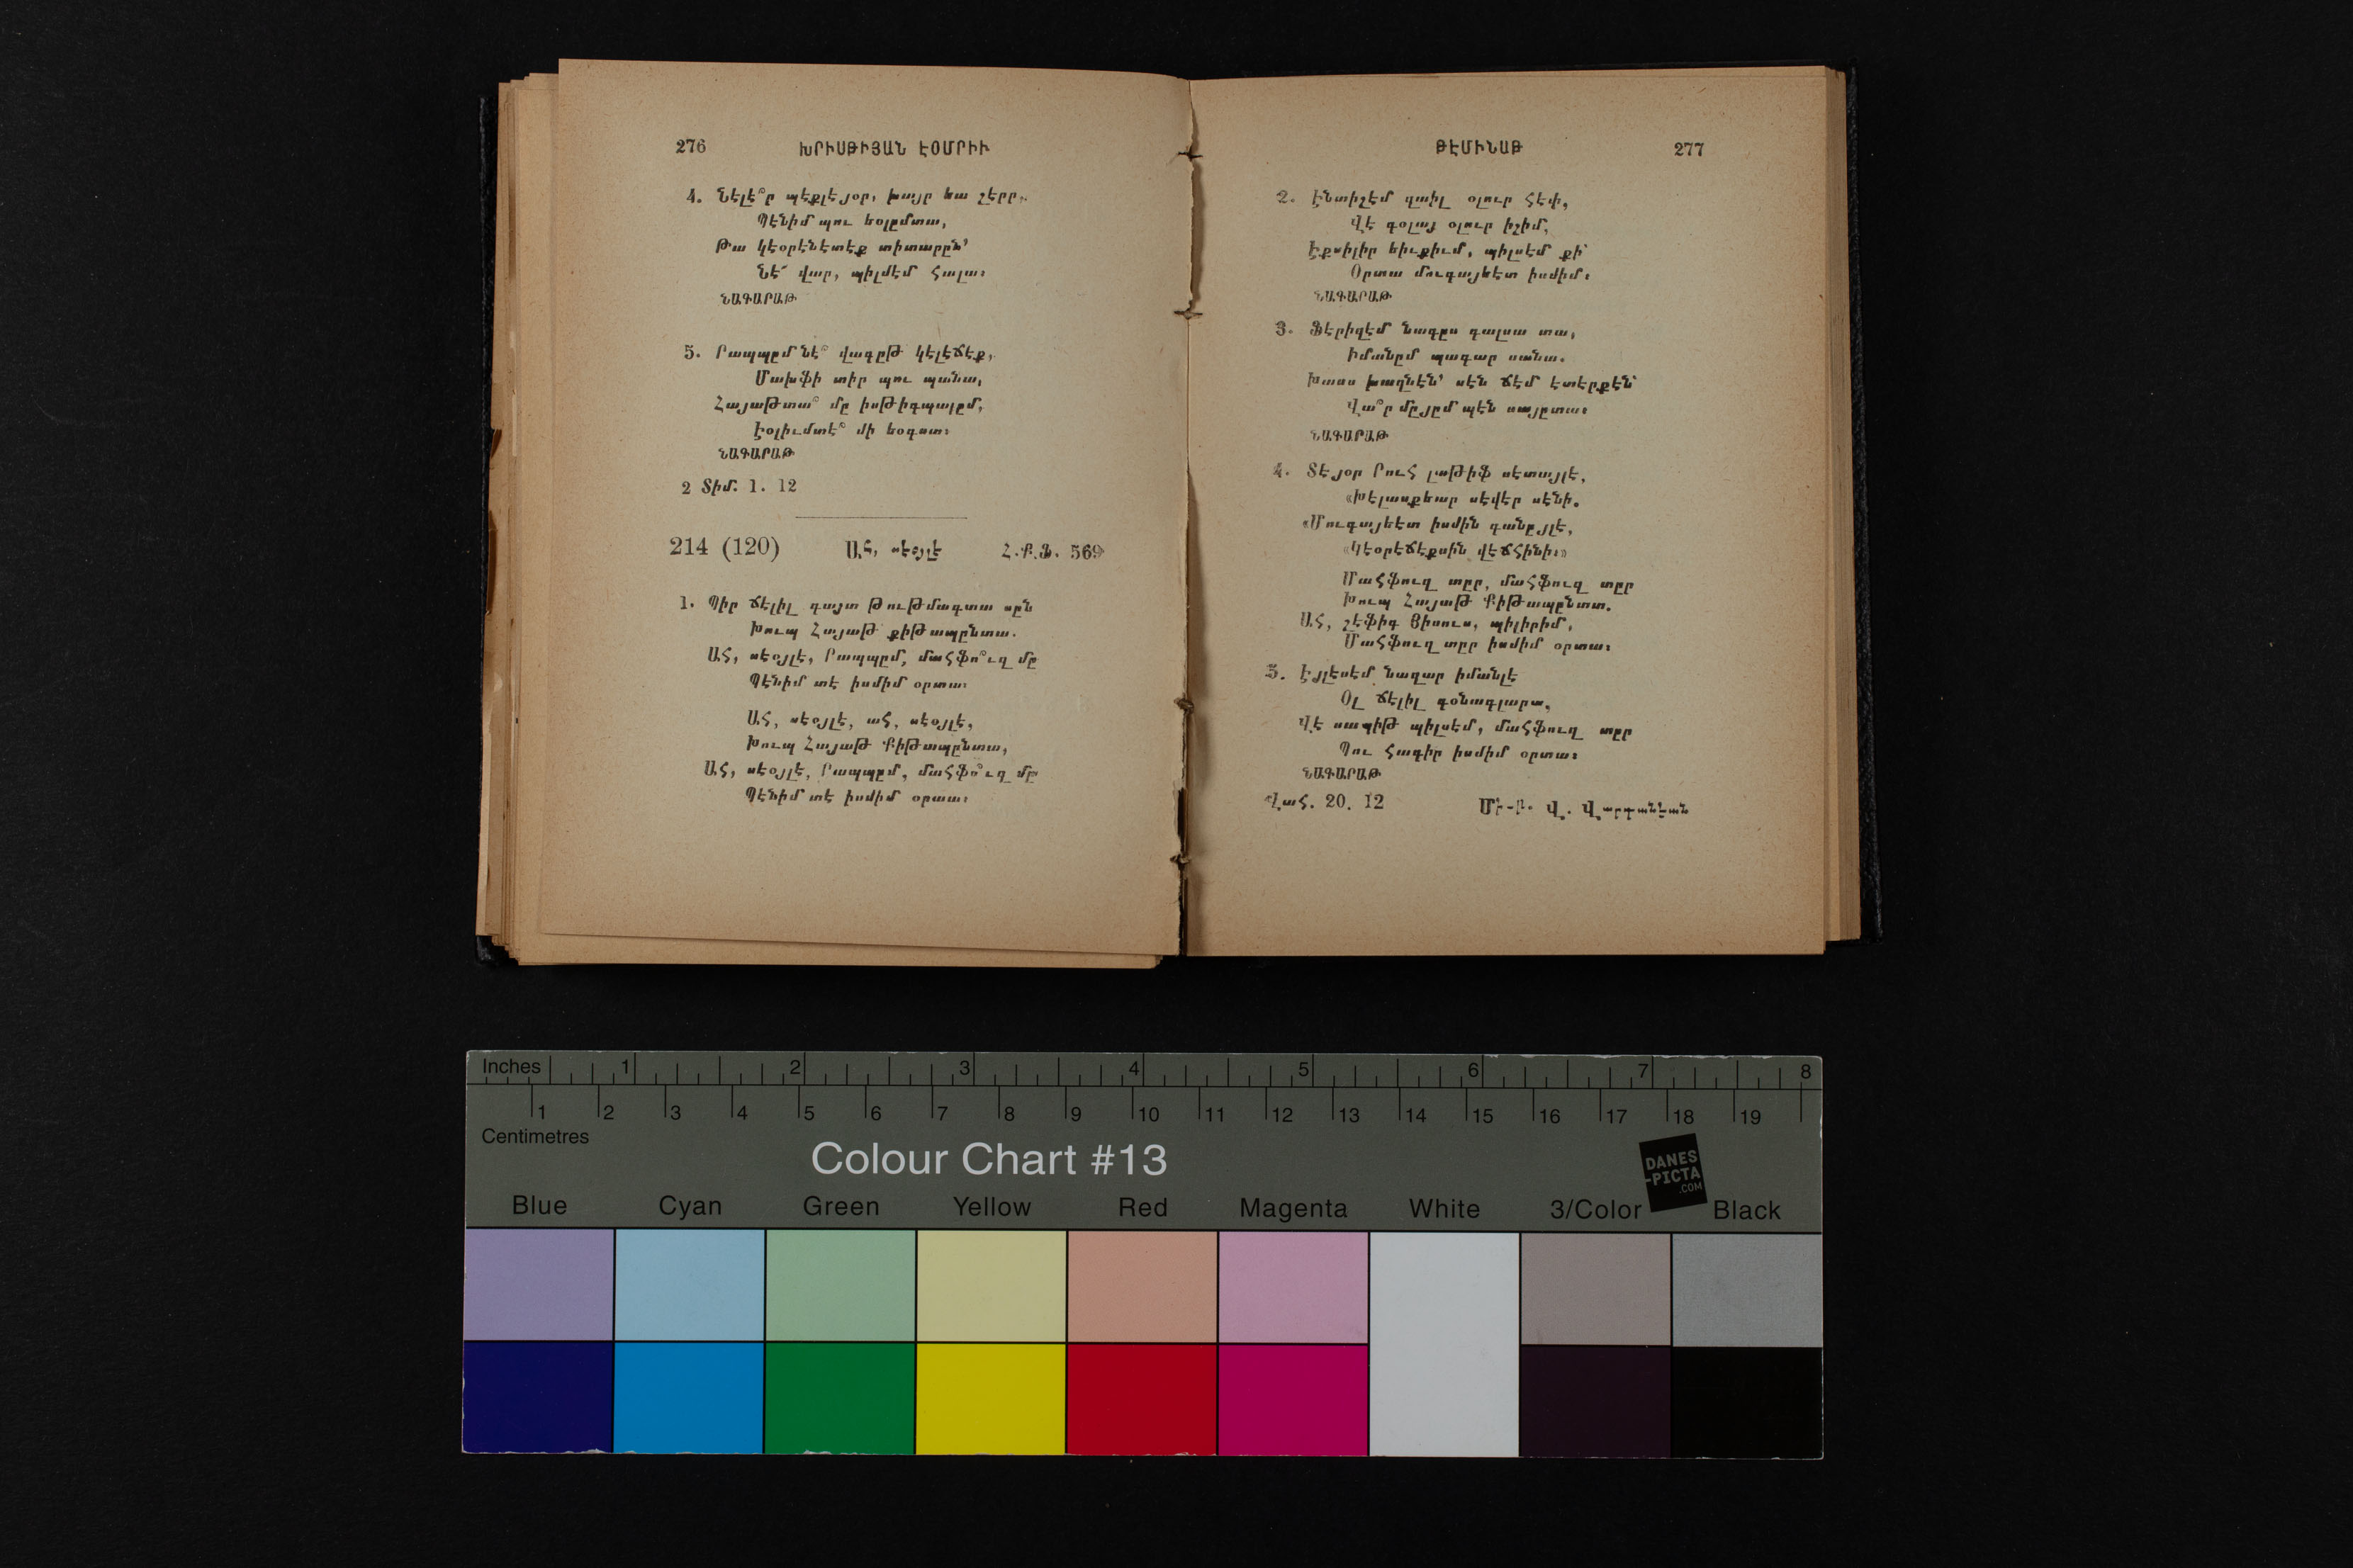 276 ԽՐԻՍԹԻՅԱՆ ԷՕՄՐԻՒ
4. Նելէ՞ր պէքլէյօր, խայր եա շէրր,
Պէնիմ պու եօլըմտա,
Թա կէօրէնէտէք տիտարըն՝
Նէ՜ վար, պիլմէմ հալա։
ՆԱԳԱՐԱԹ
5. Րապպըմ նէ՞ վագըթ կէլէճէք,
Մախֆի տիր պու պանա,
Հայաթտա՞ մը իսթիգպալըմ,
Էօլիւմտէ՞ մի եօգսա։
ՆԱԳԱՐԱԹ
2 Տիմ. 1. 12
214 (120) ԱՀ, սէօյլէ Հ.Ք.Ֆ. 569
1. Պիր ճէլիլ գայտ թութմագտա սըն
Խուպ Հայաթ քիթապընտա.
ԱՀ, սէօյլէ, Րապպըմ, մահֆո՞ւզ մը
Պէնիմ տէ իսմիմ օրտա։
ԱՀ, սէօյլէ, ահ, սէօյլէ,
Խուպ Հայաթ Քիթապընտա,
ԱՀ, սէօյլէ, Րապպըմ, մահֆո՞ւզ մը
Պէնիմ տէ իսմիմ օրտա։
ԹԷՄԻՆԱԹ 277
2. Էնտիշէմ զաիլ օլուր հէփ,
Վէ գօլայ օլուր իշիմ,
Էքսիլիր եիւքիւմ, պիլսէմ քի՝
Օրտա մուգայեէտ իսմիմ։
ՆԱԳԱՐԱԹ
3. Ֆէրիզէմ նագըս գալսա տա,
Իմանըմ պագար սանա.
Խասս խաղնէն՝ սէն ճէմ էտէրքէն՝
Վա՞ր մըյըմ պէն սայըտա։
ՆԱԳԱՐԱԹ
4. Տէյօր Րուհ լաթիֆ սէտայլէ,
«Խէլասքեար սէվէր սէնի.
«Մուգայեէտ իսմին գանըյլէ,
«Կէօրէճէքսին վէճհինի։»
Մահֆուզ տըր, մահֆուզ տըր
Խուպ Հայաթ Քիթապընտա.
ԱՀ, շէֆիգ Յիսուս, պիլիրիմ,
Մահֆուզ տըր իսմիմ օրտա։
5. Էյլէսէմ նազար իմանլէ
Օլ ճէլիլ գօնագլարա,
Վէ սապիթ պիլսէմ, մահֆուզ տըր
Պու հագիր իսմիմ օրտա։
ՆԱԳԱՐԱԹ
Վահ. 20. 12 Վ. Վարդանեան
Inches 1 2 3 4 5 6 7 8
1 2 3 4 5 6 7 8 9 10 11 12 13 14 15 16 17 18 19
Centimetres
Colour Chart #13
DANES
-PICTA
.COM
Blue Cyan Green Yellow Red Magenta White 3/Color Black